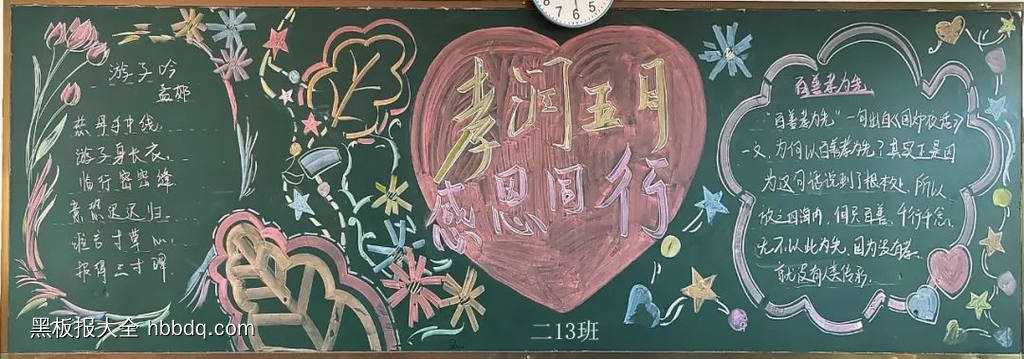 游子吟
孟郊
慈母手中线
游子身上衣
临行密密缝
意恐迟迟归
谁言寸草心
报得三寸晖
孝润五月
感恩同行
百善孝为先
"百善孝为先"一句出自《围炉夜话》
一文,为何以百善孝为先?其实正是因
为这句话说到了根本处,所以
放之四海内,但只百善,千行千意,
无不以此为先,因为没有孝,
就没有人类传承.
二13班
黑板报大全 hbbdq.com
12
5
6
7
8